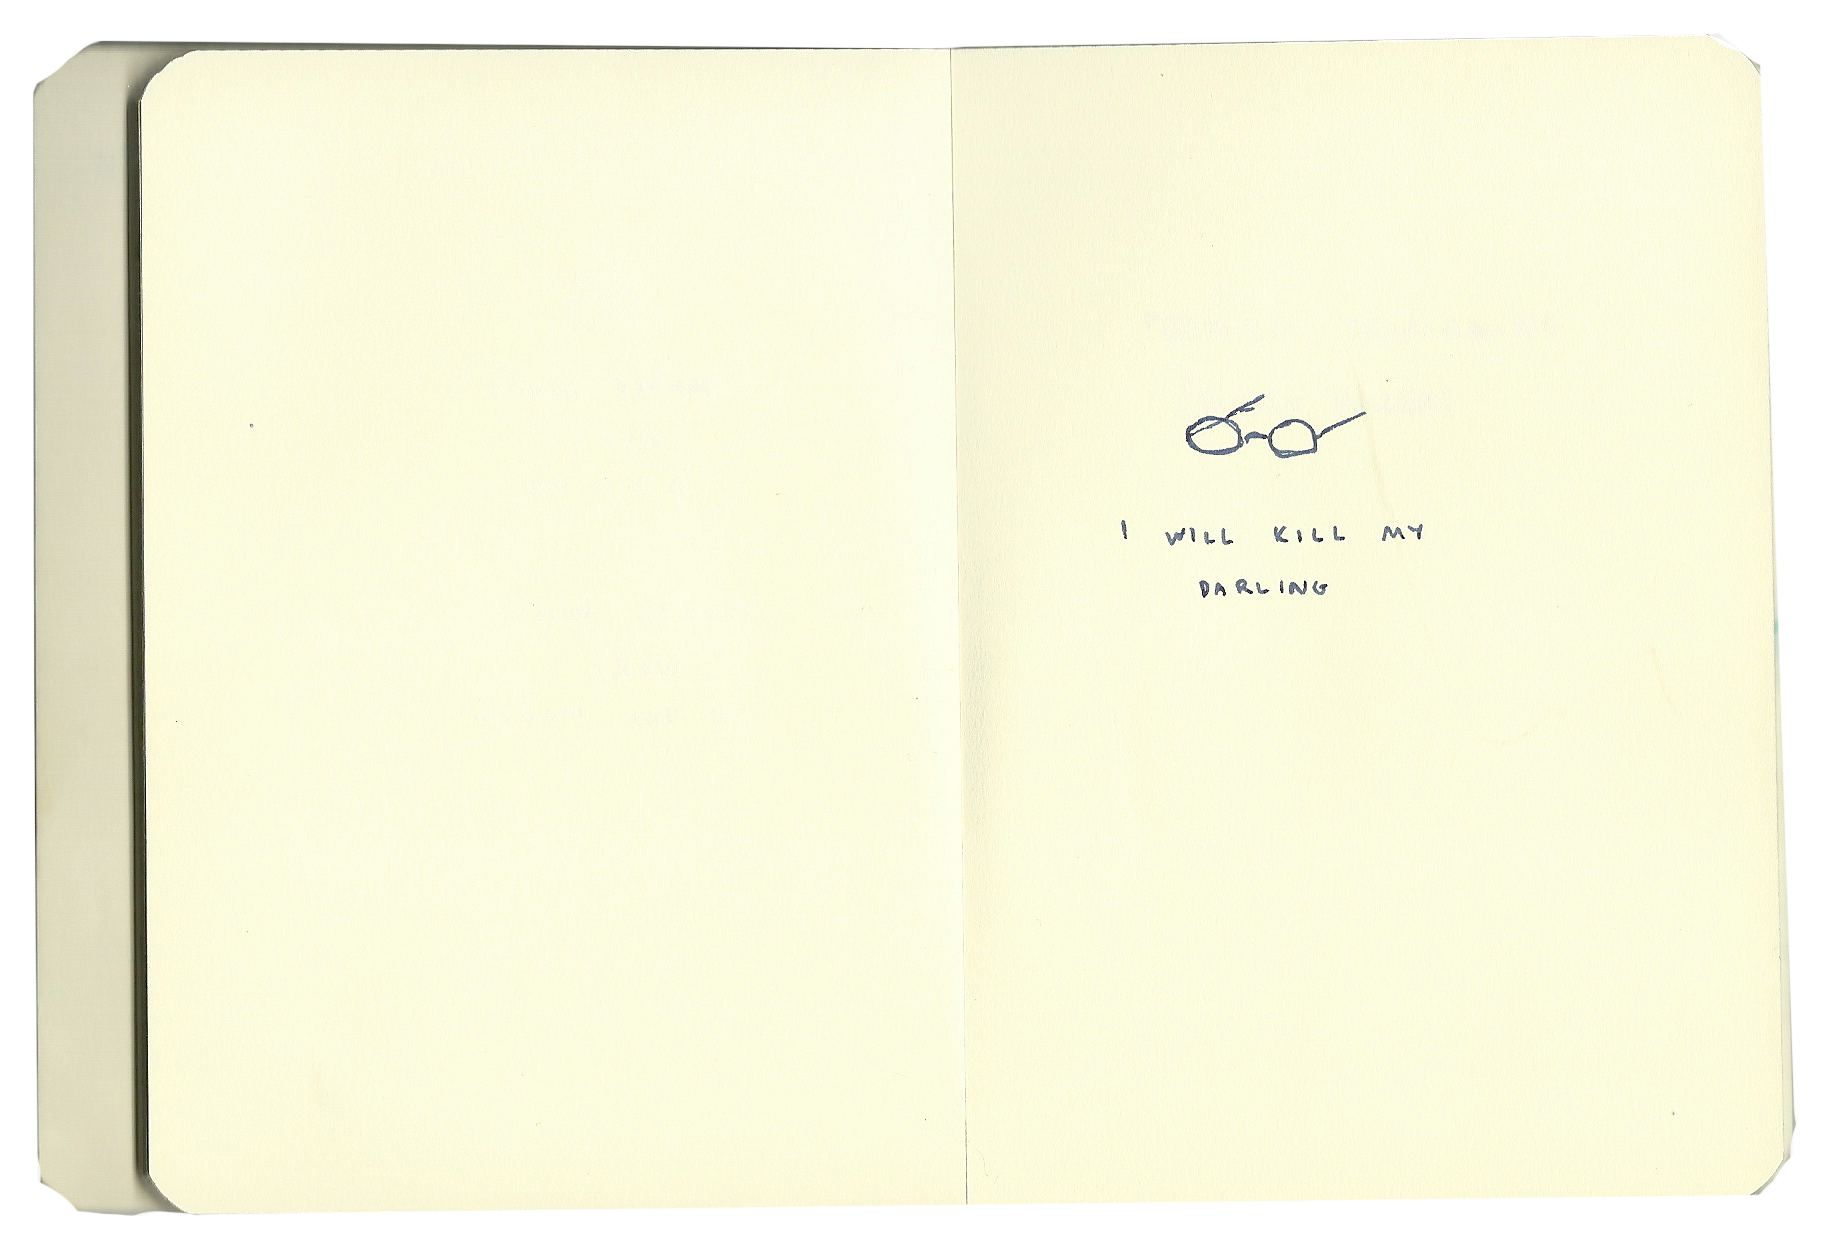 I WILL KILL MY
DARLING